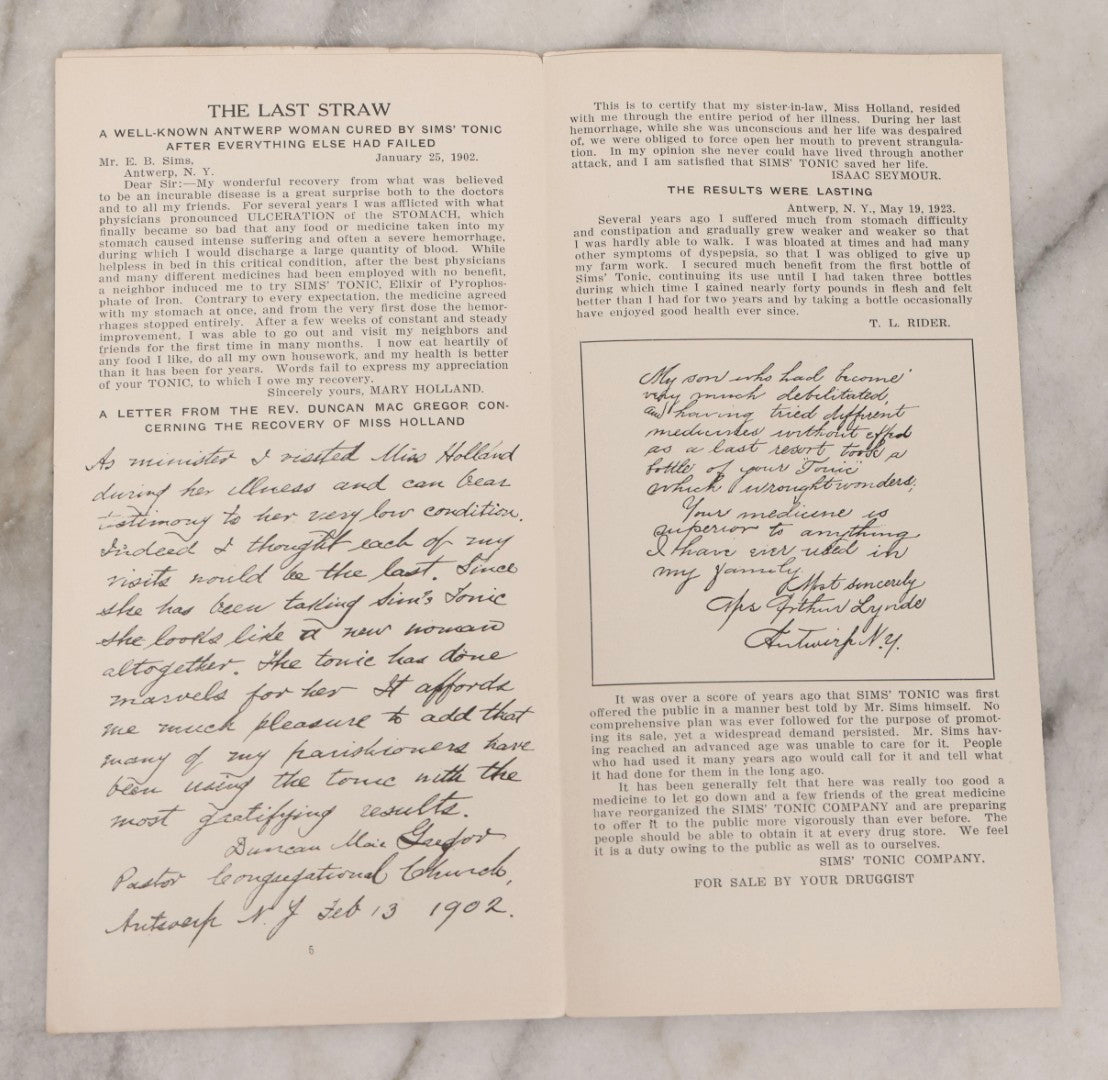 THE LAST STRAW
A WELL-KNOWN ANTWERP WOMAN CURED BY SIMS' TONIC
AFTER EVERYTHING ELSE HAD FAILED
Mr. E. B. Sims, January 25, 1902.
Antwerp, N. Y.
Dear Sir:—My wonderful recovery from what was believed
to be an incurable disease is a great surprise both to the doctors
and to all my friends. For several years I was afflicted with what
physicians pronounced ULCERATION of the STOMACH, which
finally became so bad that any food or medicine taken into my
stomach caused intense suffering and often a severe hemorrhage,
during which I would discharge a large quantity of blood. While
helpless in bed in this critical condition, after the best physicians
and many different medicines had been employed with no benefit,
a neighbor induced me to try SIMS' TONIC, Elixir of Pyrophos-
phate of Iron. Contrary to every expectation, the medicine agreed
with my stomach at once, and from the very first dose the hemor-
rhages stopped entirely. After a few weeks of constant and steady
improvement, I was able to go out and visit my neighbors and
friends for the first time in many months. I now eat heartily of
any food I like, do all my own housework, and my health is better
than it has been for years. Words fail to express my appreciation
of your TONIC, to which I owe my recovery.
Sincerely yours, MARY HOLLAND.
A LETTER FROM THE REV. DUNCAN MAC GREGOR CON-
CERNING THE RECOVERY OF MISS HOLLAND
As minister I visited Miss Holland
during her illness and can bear
testimony to her very low condition.
Indeed I thought each of my
visits would be the last. Since
she has been taking Sim's Tonic
she looks like a new woman
altogether. The tonic has done
marvels for her It affords
me much pleasure to add that
many of my parishioners have
been using the tonic with the
most gratifying results.
Duncan Mac Gregor
Pastor Congregational Church,
Antwerp N. Y Feb 13 1902.
6
This is to certify that my sister-in-law, Miss Holland, resided
with me through the entire period of her illness. During her last
hemorrhage, while she was unconscious and her life was despaired
of, we were obliged to force open her mouth to prevent strangula-
tion. In my opinion she never could have lived through another
attack, and I am satisfied that SIMS' TONIC saved her life.
ISAAC SEYMOUR.
THE RESULTS WERE LASTING
Antwerp, N. Y., May 19, 1923.
Several years ago I suffered much from stomach difficulty
and constipation and gradually grew weaker and weaker so that
I was hardly able to walk. I was bloated at times and had many
other symptoms of dyspepsia, so that I was obliged to give up
my farm work. I secured much benefit from the first bottle of
Sims' Tonic, continuing its use until I had taken three bottles
during which time I gained nearly forty pounds in flesh and felt
better than I had for two years and by taking a bottle occasionally
have enjoyed good health ever since.
T. L. RIDER.
My son who had become
very much debilitated,
and having tried different
medicines without effect
as a last resort, took a
bottle of your "Tonic"
which wrought wonders.
Your medicine is
superior to anything
I have ever used in
my family.
Most sincerely
Mrs Arthur Lynde
Antwerp N.Y.
It was over a score of years ago that SIMS' TONIC was first
offered the public in a manner best told by Mr. Sims himself. No
comprehensive plan was ever followed for the purpose of promot-
ing its sale, yet a widespread demand persisted. Mr. Sims hav-
ing reached an advanced age was unable to care for it. People
who had used it many years ago would call for it and tell what
it had done for them in the long ago.
It has been generally felt that here was really too good a
medicine to let go down and a few friends of the great medicine
have reorganized the SIMS' TONIC COMPANY and are preparing
to offer it to the public more vigorously than ever before. The
people should be able to obtain it at every drug store. We feel
it is a duty owing to the public as well as to ourselves.
SIMS' TONIC COMPANY.
FOR SALE BY YOUR DRUGGIST